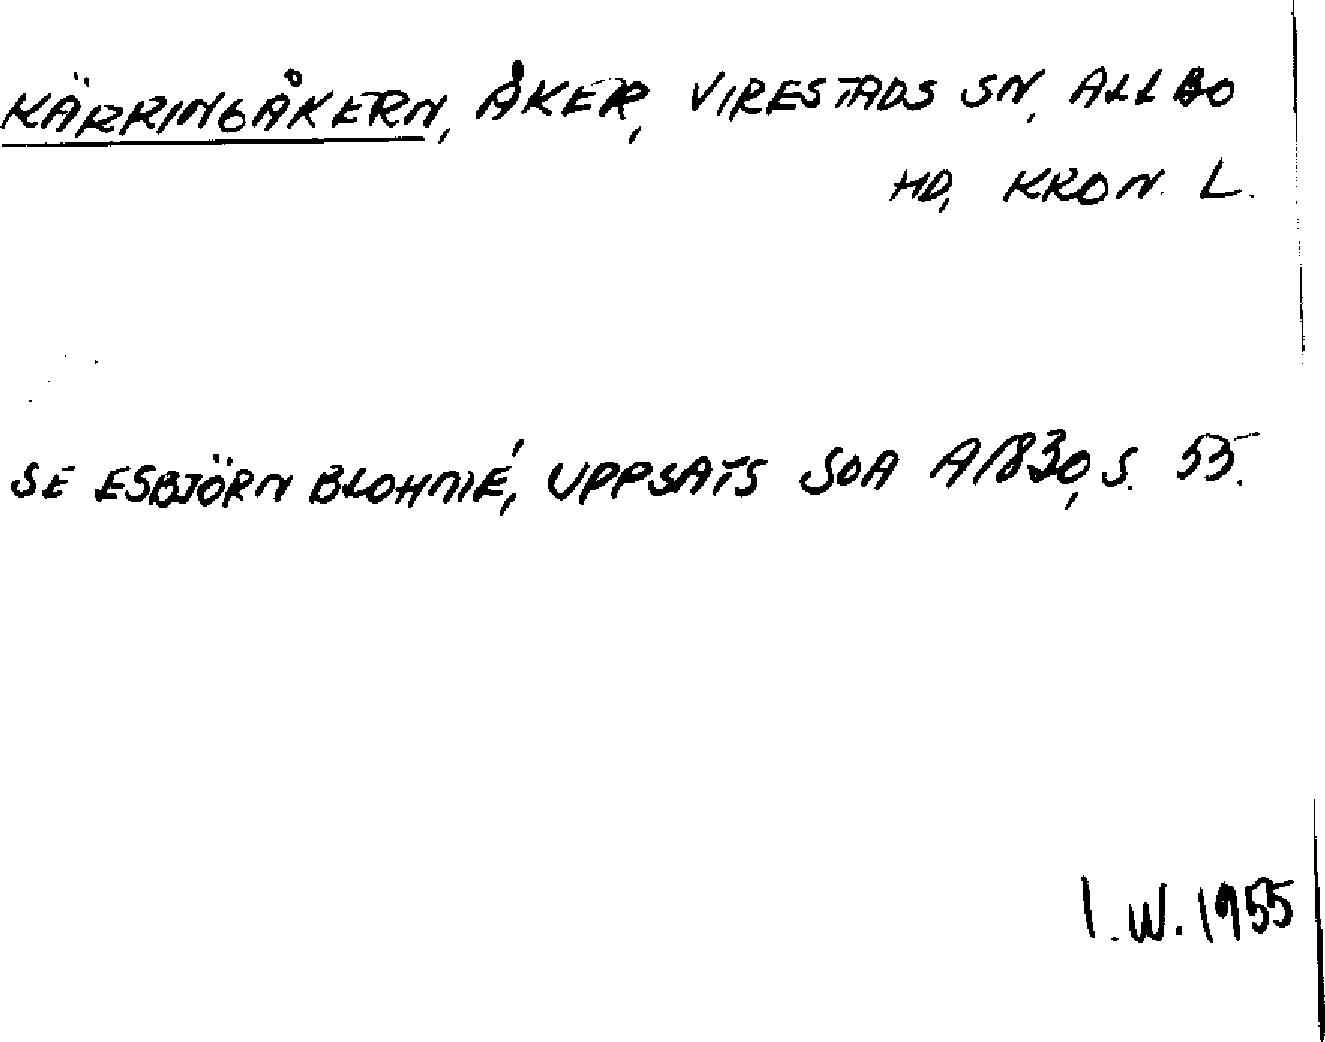 KÄRRINGÅKERN, ÅKER, VIRESTADS SN, ALLBO
HD, KRON. L.
SE ESBJÖRN BLOHMÉ, UPPSATS SOA A1830, S. 55.
I.W. 1955